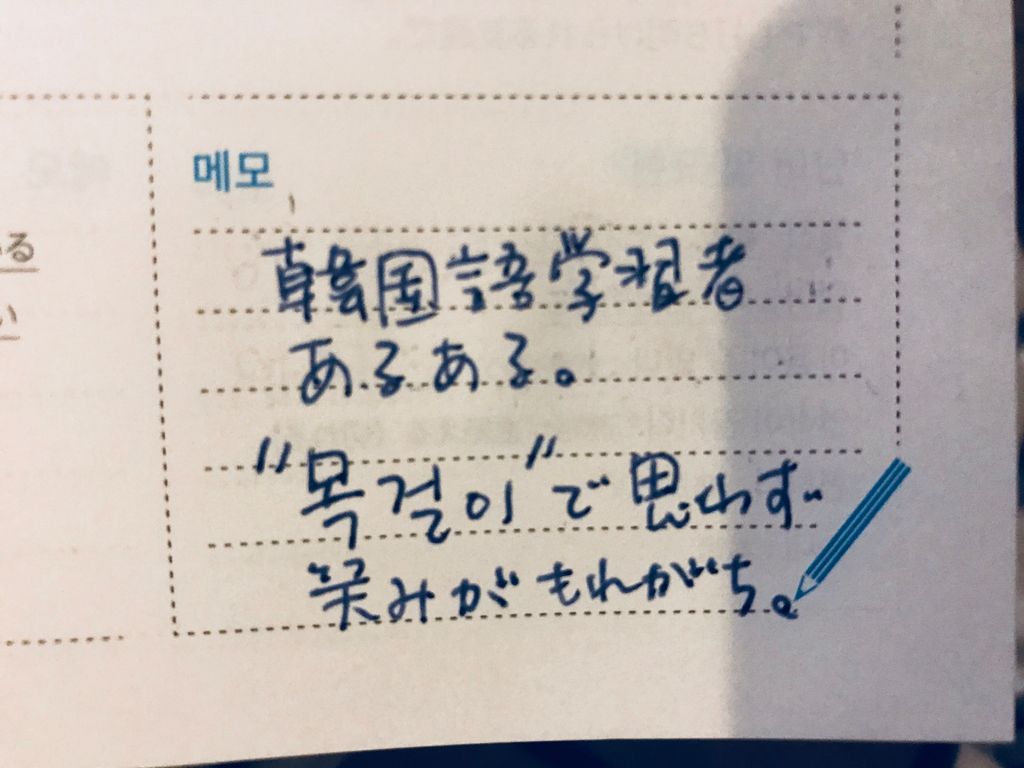 메모
韓国語学習者
あるある。
"목걸이"で思わず
笑みがもれがち。
る
い